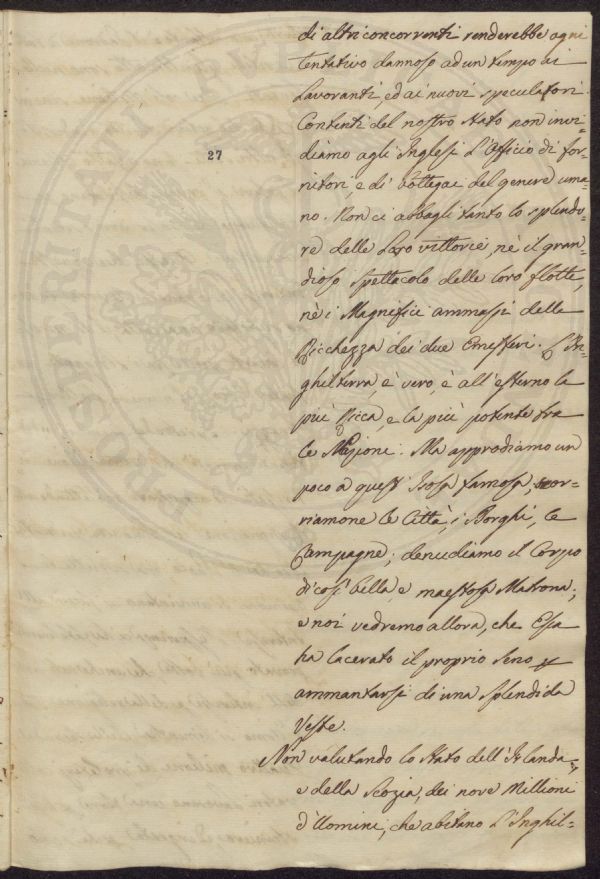 di altri concorrenti renderebbe ogni
tentativo dannoso ad un tempo ai
Lavoranti, ed ai nuovi speculatori.
Contenti del nostro stato non invi-
27
diamo agli Inglesi l'Officio di for-
nitori, e di bottegai del genere uma-
no. Non ci abbagli tanto lo splendo-
re delle Loro vittorie, nè il gran-
dioso spettacolo delle loro flotte,
nè i Magnifici ammassi delle
Ricchezza dei due Emisferi. L'In-
ghilterra, è vero, è all'esterno la
più Ricca e la più potente fra
le Nazioni. Ma approdiamo un
poco a quest'Isola famosa, scor-
riamone le Città, i Borghi, le
Campagne; denudiamo il Corpo
di così bella, e maestosa Matrona;
e noi vedremo allora, che Essa
ha lacerato il proprio seno
ammantarsi di una splendida
Veste.
Non valutando lo stato dell'Irlanda,
e della Scozia, dei nove Millioni
d'Uomini, che abitano l'Inghil-